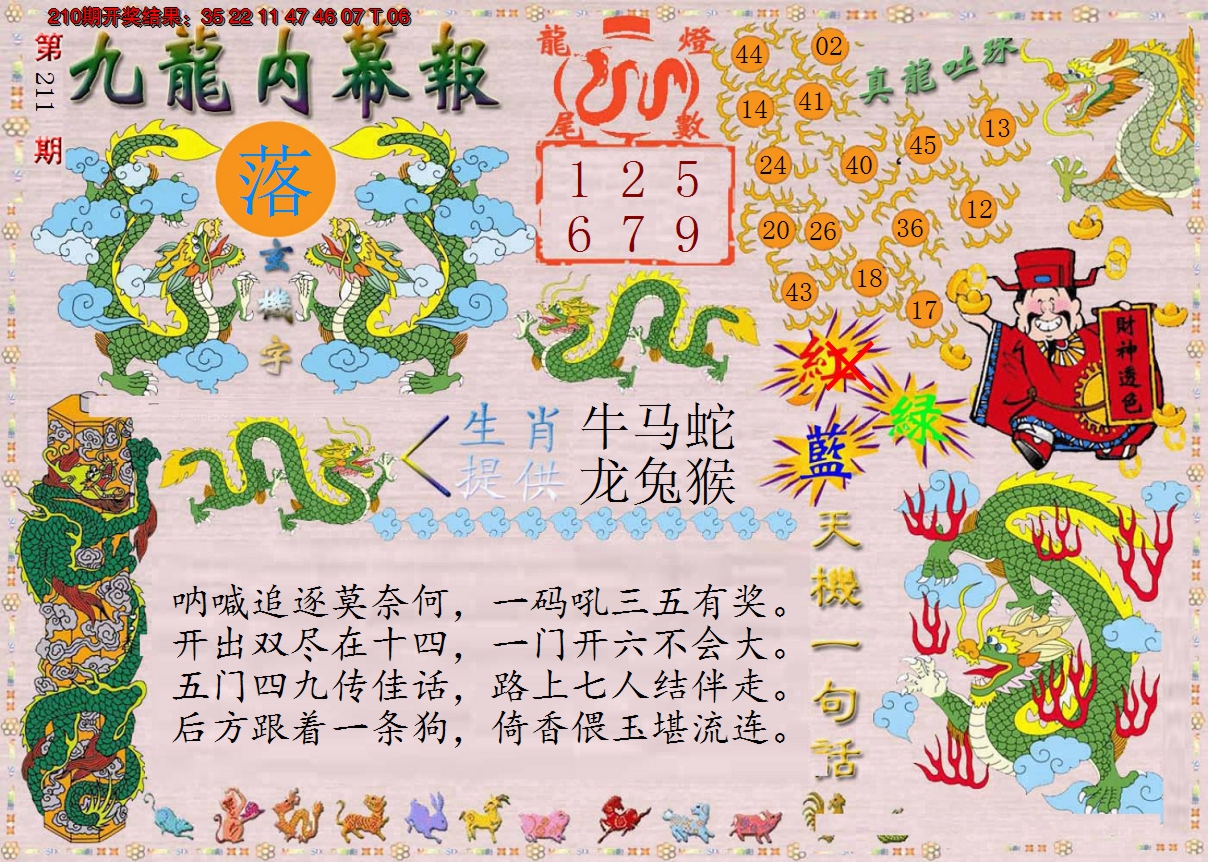 210期开奖结果：35 22 11 47 46 07 T 06
第211期
九龍内幕報
落
玄機字
龍燈
尾數
1 2 5
6 7 9
真龍吐珠
44 02
14 41
45 13
24 40
12
20 26 36
18
43 17
財神透色
紅
綠
藍
生肖提供
牛马蛇
龙兔猴
天機一句话
呐喊追逐莫奈何，一码吼三五有奖。
开出双尽在十四，一门开六不会大。
五门四九传佳话，路上七人结伴走。
后方跟着一条狗，倚香偎玉堪流连。